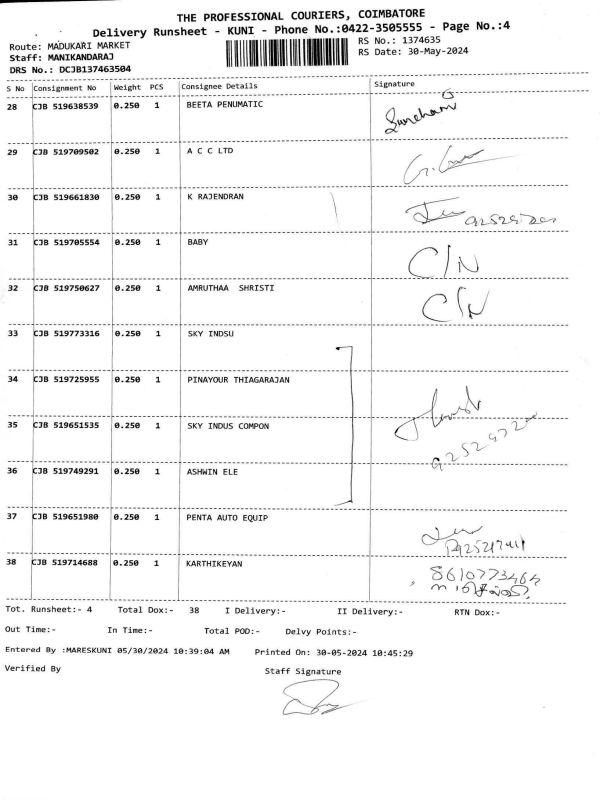 THE PROFESSIONAL COURIERS, COIMBATORE
Delivery Runsheet - KUNI - Phone No.:0422-3505555 - Page No.:4
Route: MADUKARI MARKET RS No.: 1374635
Staff: MANIKANDARAJ RS Date: 30-May-2024
DRS No.: DCJB137463504
S No Consignment No Weight PCS Consignee Details Signature
28 CJB 519638539 0.250 1 BEETA PENUMATIC
29 CJB 519709502 0.250 1 A C C LTD
30 CJB 519661830 0.250 1 K RAJENDRAN
31 CJB 519705554 0.250 1 BABY C/N
32 CJB 519750627 0.250 1 AMRUTHAA SHRISTI C/N
33 CJB 519773316 0.250 1 SKY INDSU
34 CJB 519725955 0.250 1 PINAYOUR THIAGARAJAN
35 CJB 519651535 0.250 1 SKY INDUS COMPON
36 CJB 519749291 0.250 1 ASHWIN ELE
37 CJB 519651980 0.250 1 PENTA AUTO EQUIP
38 CJB 519714688 0.250 1 KARTHIKEYAN 8610773464
Tot. Runsheet:- 4 Total Dox:- 38 I Delivery:- II Delivery:- RTN Dox:-
Out Time:- In Time:- Total POD:- Delvy Points:-
Entered By :MARESKUNI 05/30/2024 10:39:04 AM Printed On: 30-05-2024 10:45:29
Verified By Staff Signature